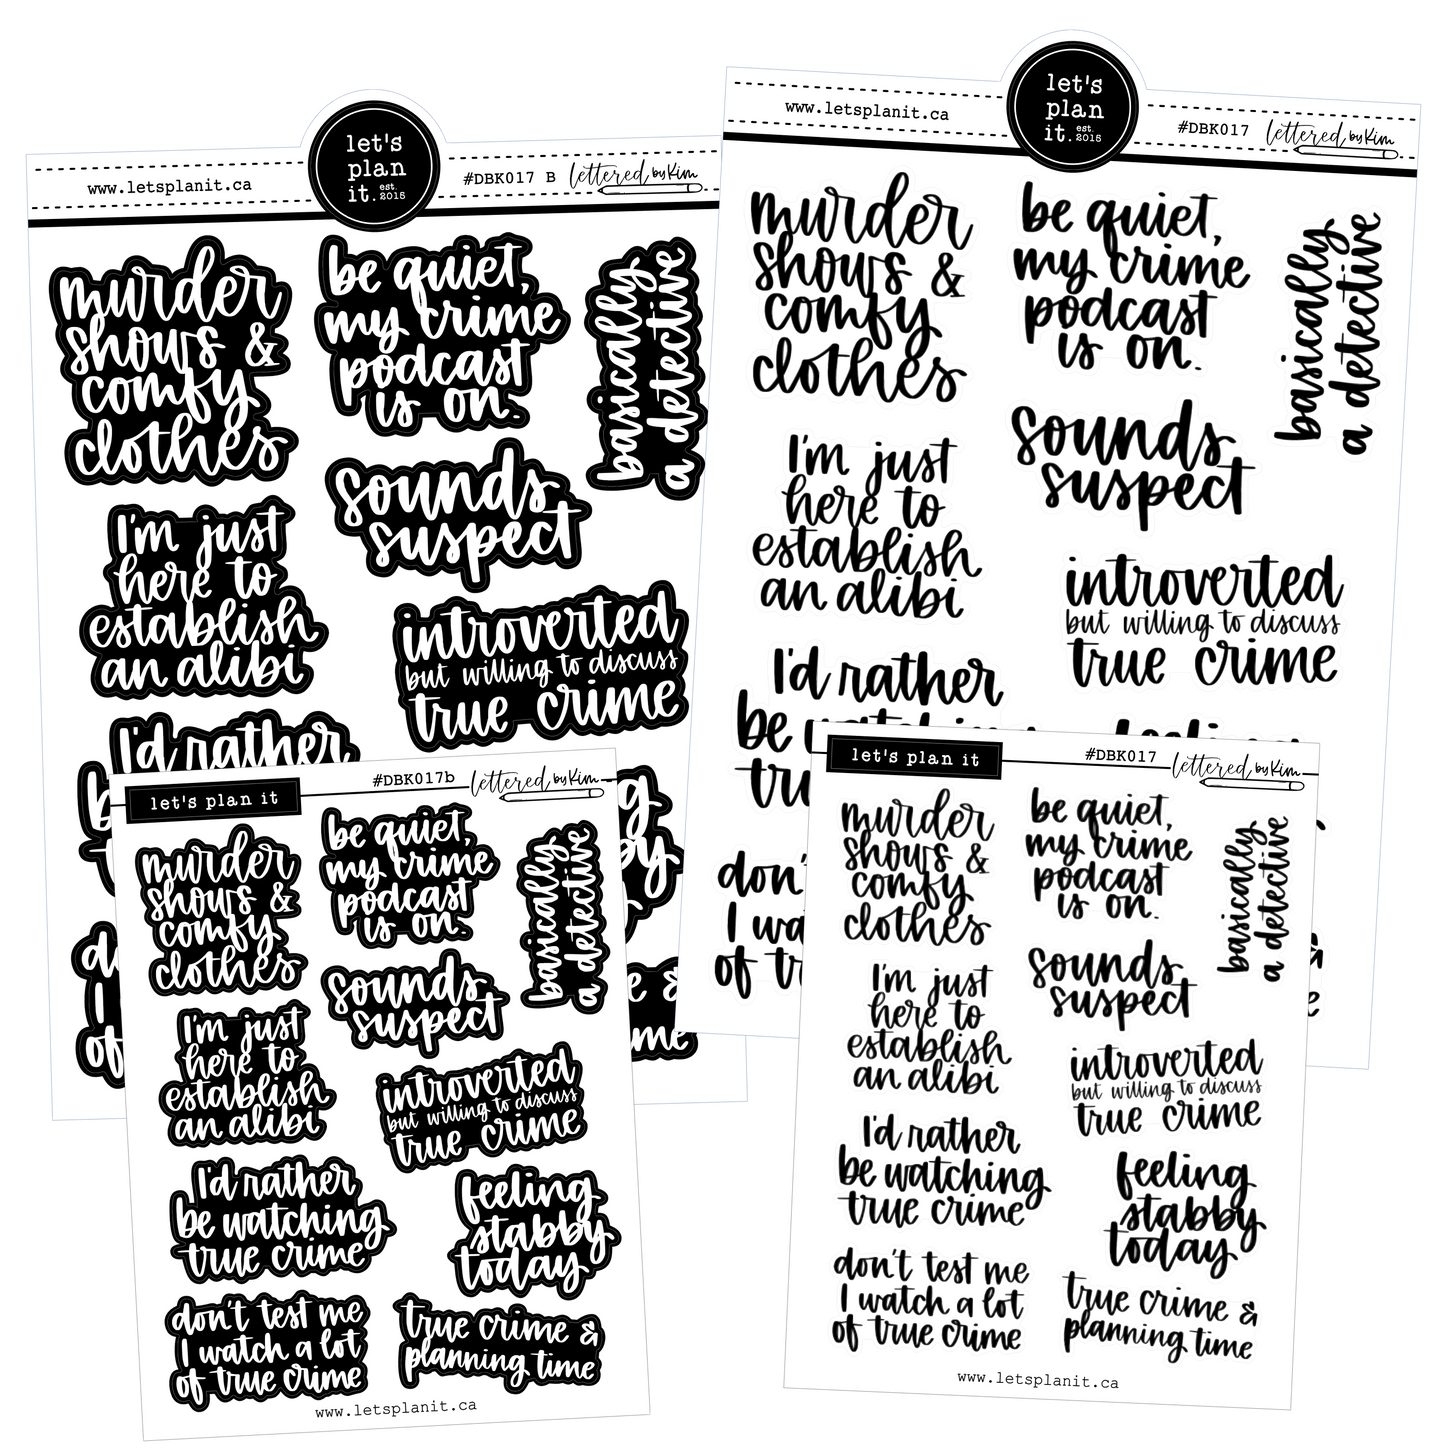 www.letsplanit.ca
let's
plan
it.
est.
2015
#DBK017 B
lettered by Kim
murder
shows &
comfy
clothes
be quiet,
my crime
podcast
is on.
basically
a detective
I'm just
here to
establish
an alibi
sounds
suspect
introverted
but willing to discuss
true crime
I'd rather
www.letsplanit.ca
let's
plan
it.
est.
2015
#DBK017
lettered by Kim
murder
shows &
comfy
clothes
be quiet,
my crime
podcast
is on.
basically
a detective
I'm just
here to
establish
an alibi
sounds
suspect
introverted
but willing to discuss
true crime
I'd rather
be
don'
I wa
of tr
let's plan it
#DBK017b
lettered by Kim
murder
shows &
comfy
clothes
be quiet,
my crime
podcast
is on.
basically
a detective
I'm just
here to
establish
an alibi
sounds
suspect
introverted
but willing to discuss
true crime
I'd rather
be watching
true crime
feeling
stabby
today
don't test me
I watch a lot
of true crime
true crime &
planning time
www.letsplanit.ca
let's plan it
#DBK017
lettered by Kim
murder
shows &
comfy
clothes
be quiet,
my crime
podcast
is on.
basically
a detective
I'm just
here to
establish
an alibi
sounds
suspect
introverted
but willing to discuss
true crime
I'd rather
be watching
true crime
feeling
stabby
today
don't test me
I watch a lot
of true crime
true crime &
planning time
www.letsplanit.ca